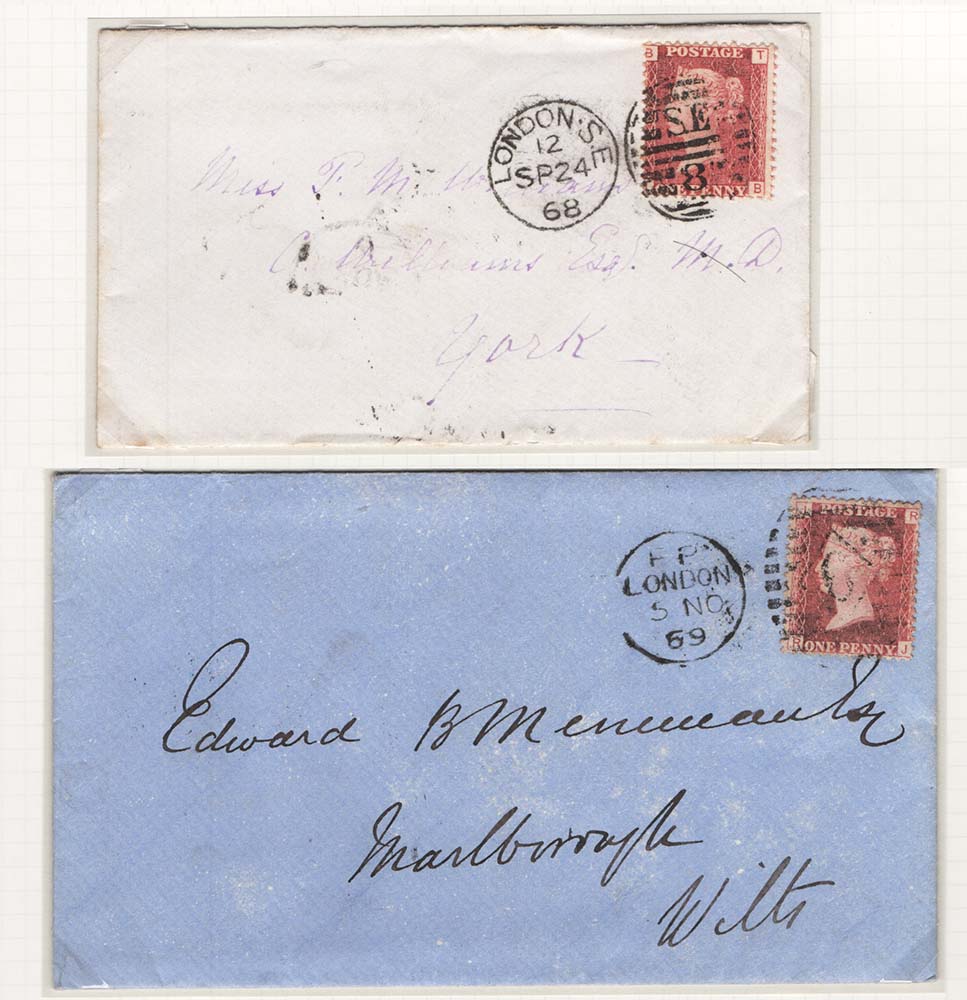 B POSTAGE T
LONDON·S.E
12
SP24
68
SE
8
PENNY B
Miss F. M. Williams
C. Williams Esq. M.D.
York
J POSTAGE R
LONDON
5 NO
69
R ONE PENNY J
Edward B Merriman Esq
Marlborough
Wilts